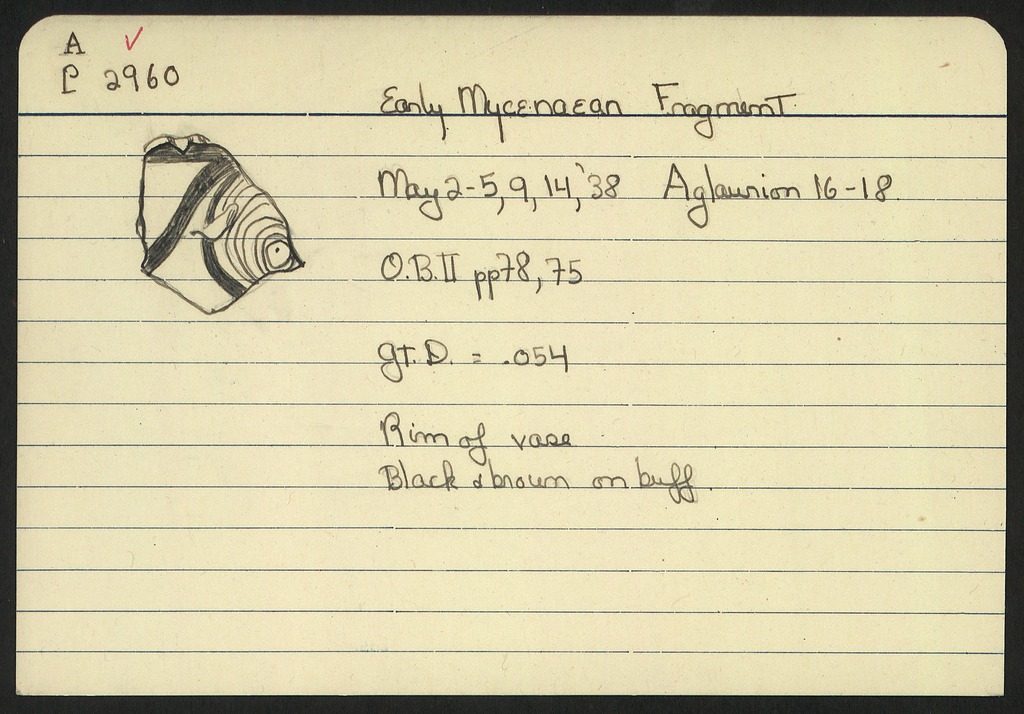 A ✓
P 2960
Early Mycenaean Fragment
May 2-5, 9, 14, '38 Aglaurion 16-18.
O.B. II pp 78, 75
gt. D. = .054
Rim of vase
Black & brown on buff.